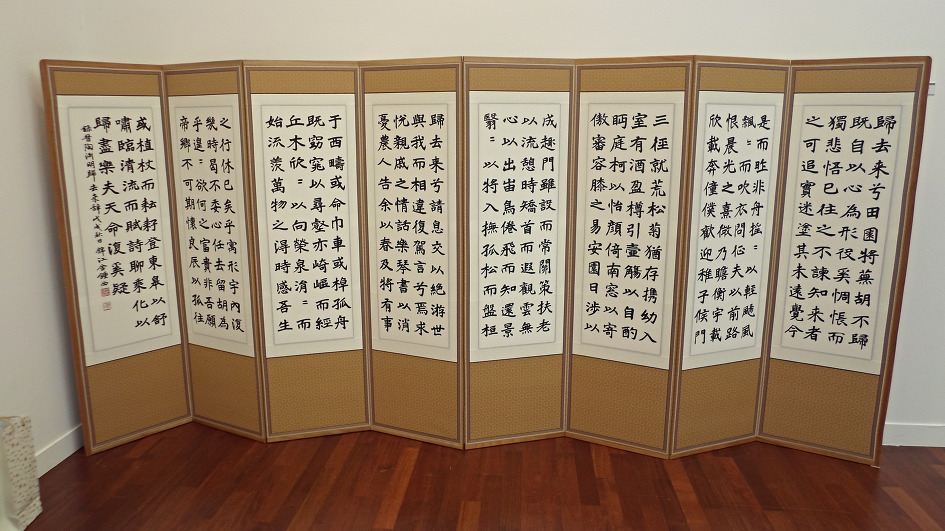 歸去来兮田園将蕪胡不歸
既自以心為形役奚惆悵而
獨悲悟已往之不諫知来者
之可追實迷塗其未遠覺今
是而昨非舟搖〻以輕颺風
飄〻而吹衣問征夫以前路
恨晨光之熹微乃瞻衡宇載
欣載奔僮僕歡迎稚子候門
三徑就荒松菊猶存携幼入
室有酒盈樽引壺觴以自酌
眄庭柯以怡顔倚南窓以寄
傲審容膝之易安園日涉以
成趣門雖設而常關策扶老
以流憩時矯首而遐觀雲無
心以出岫鳥倦飛而知還景
翳〻以将入撫孤松而盤桓
歸去来兮請息交以絶游世
與我而相違復駕言兮焉求
悅親戚之情話樂琴書以消
憂農人告余以春及将有事
于西疇或命巾車或棹孤舟
既窈窕以尋壑亦崎嶇而經
丘木欣〻以向榮泉涓〻而
始流羨萬物之得時感吾生
之行休已矣乎寓形宇內復
幾時曷不委心任去留胡為
乎遑〻欲何之富貴非吾願
帝鄉不可期懷良辰以孤往
或植杖而耘耔登東皐以舒
嘯臨清流而賦詩聊乘化以
歸盡樂夫天命復奚疑
錄晉陶淵明歸去来辭戊戌秋日